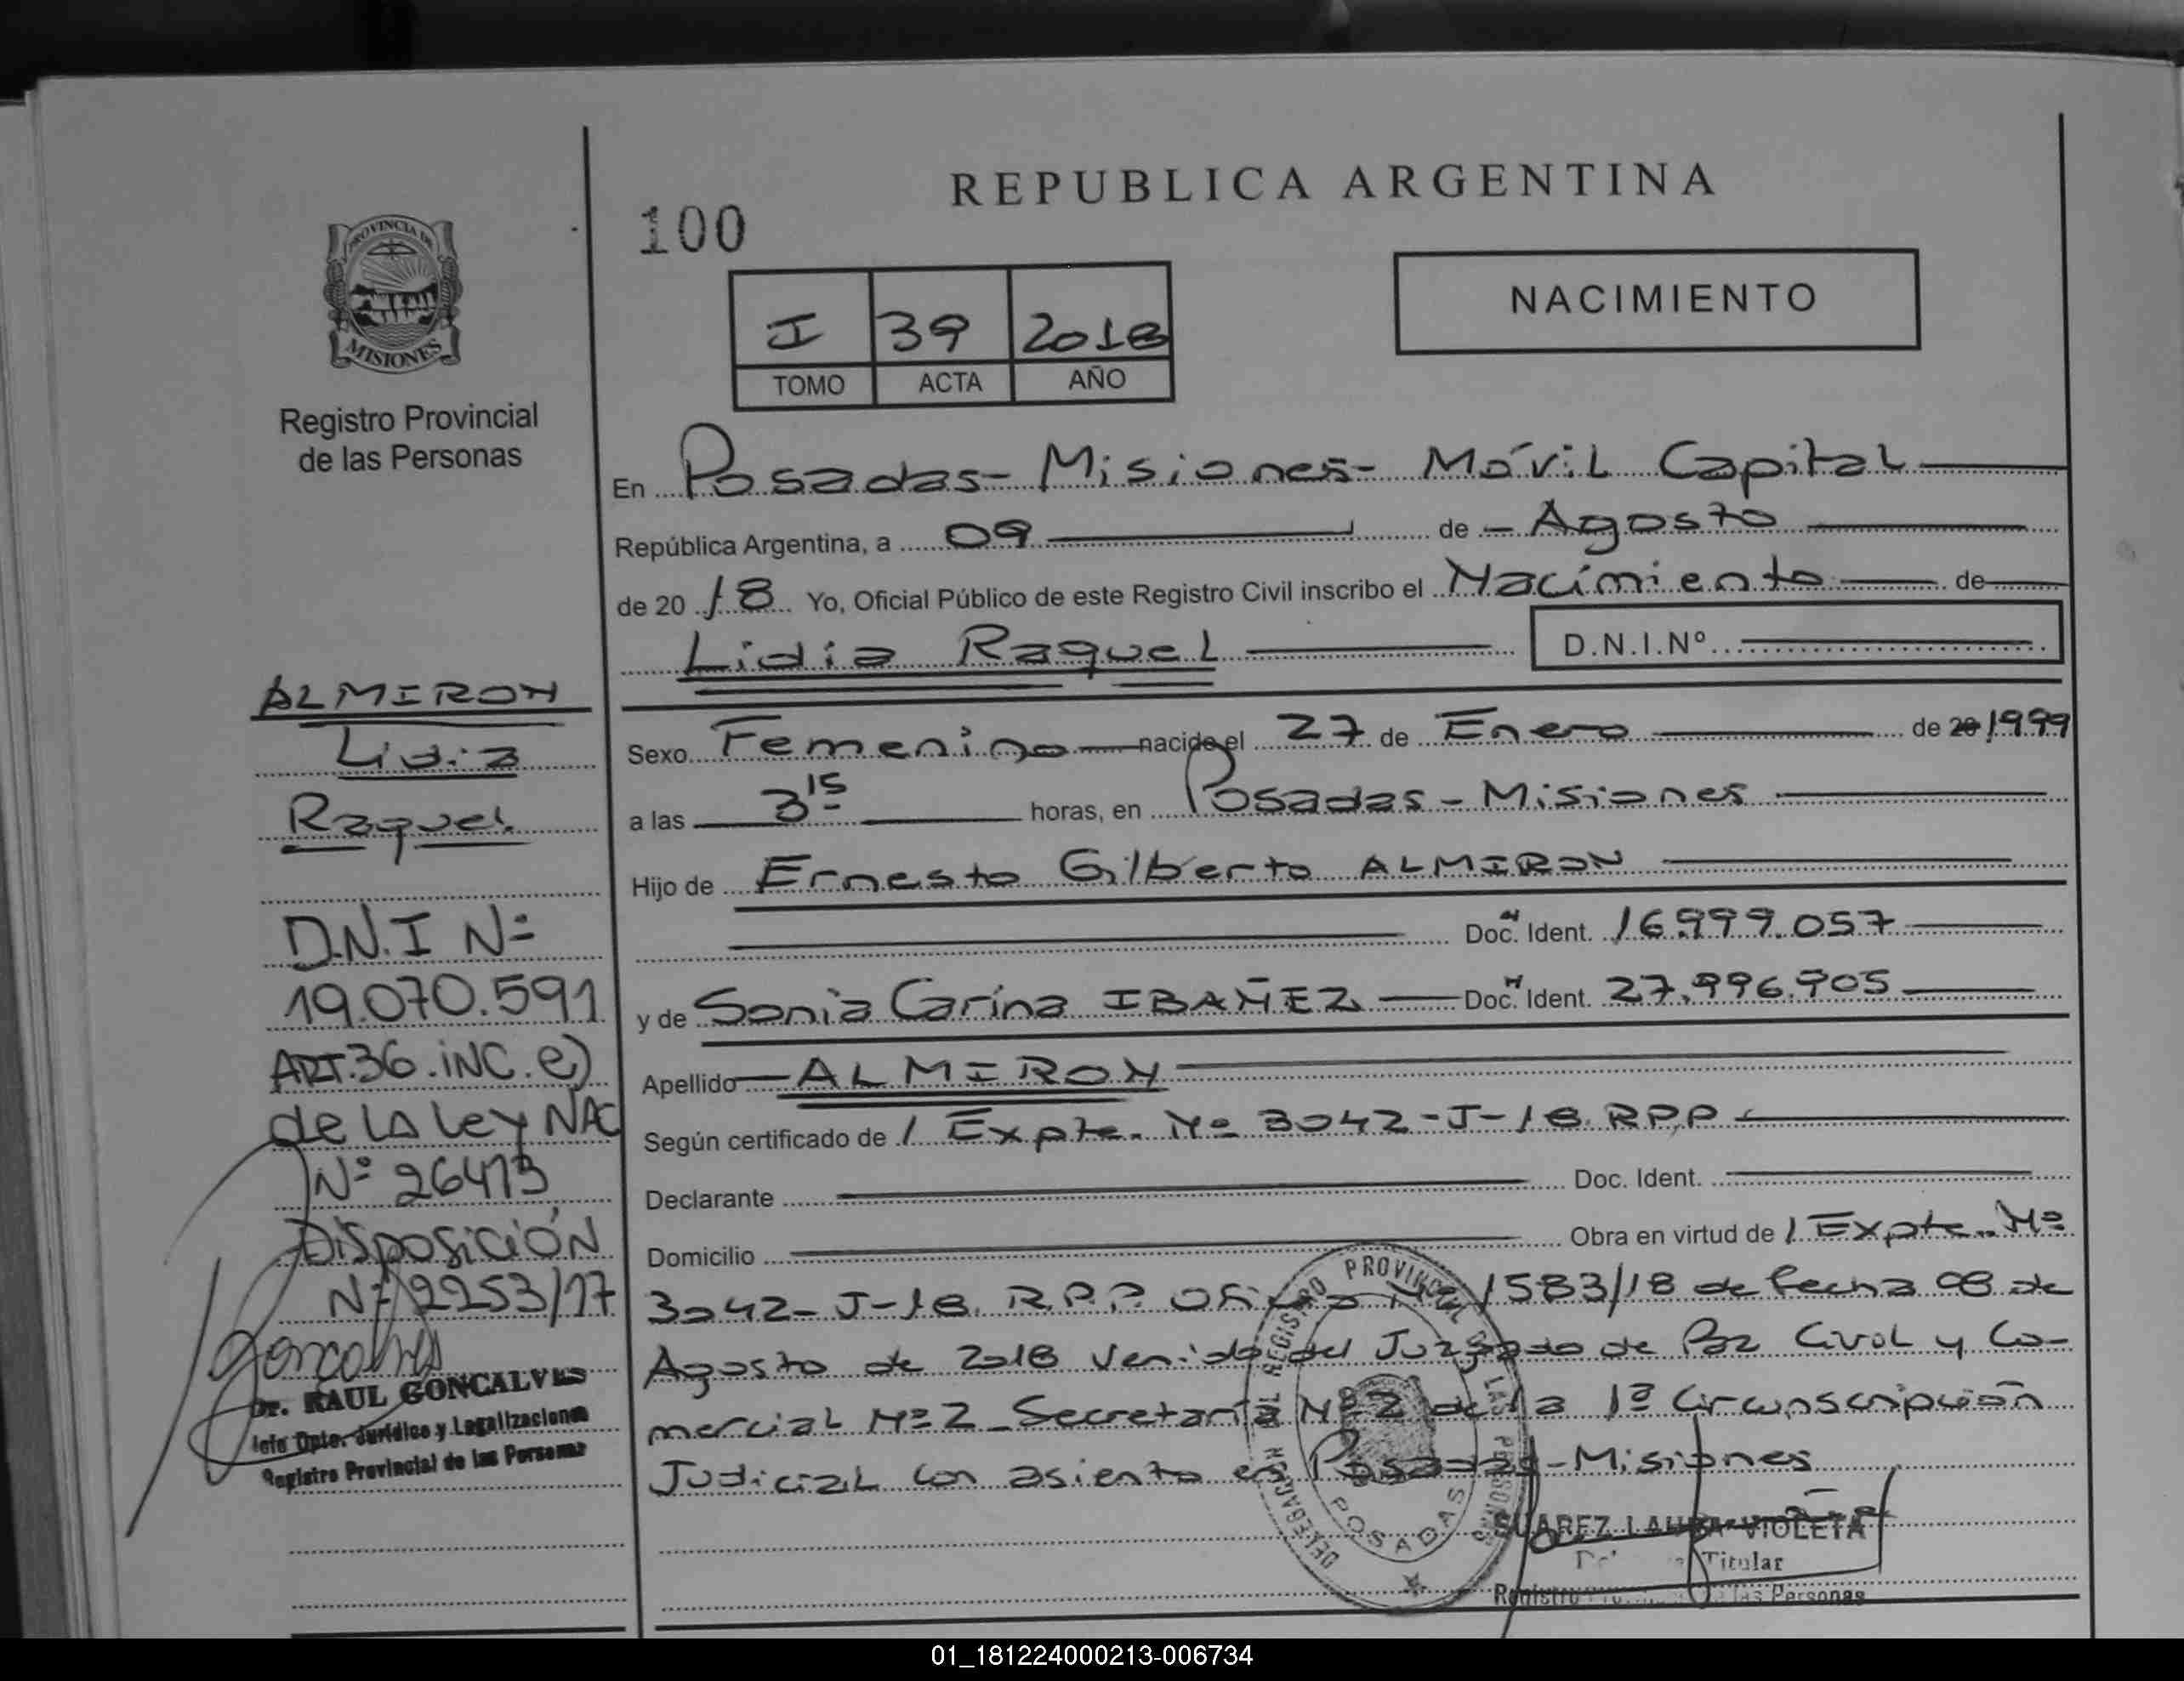 REPUBLICA ARGENTINA
100
PROVINCIA DE
MISIONES
Registro Provincial
de las Personas
NACIMIENTO
I 39 2018
TOMO ACTA AÑO
En Posadas - Misiones - Móvil Capital
República Argentina, a 09 de Agosto
de 2018 Yo, Oficial Público de este Registro Civil inscribo el Nacimiento de
Lidia Raquel D.N.I.Nº
Sexo Femenino nacido el 27 de Enero de 20 1999
a las 3 15 horas, en Posadas - Misiones
Hijo de Ernesto Gilberto ALMIRON
Doc. Ident. 16.999.057
y de Sonia Carina IBAÑEZ Doc. Ident. 27.996.905
Apellido ALMIRON
Según certificado de / Expte. Nº 3042-J-18. RPP
Declarante Doc. Ident.
Domicilio Obra en virtud de / Expte. Nº
3042-J-18. R.P.P. Oficio Nº 1583/18 de fecha 08 de
Agosto de 2018 venido del Juzgado de Paz Civil y Co-
mercial Nº 2 - Secretaría Nº 2 de la 1ª Circunscripción
Judicial con asiento en Posadas - Misiones
ALMIRON
Lidia
Raquel
D.N.I Nº
19.070.591
ART.36.iNC.e)
de LA Ley NAC
Nº 26413
Disposición
Nº 2253/17
Goncalves
Dr. RAUL GONCALVES
Jefe Dpto. Jurídico y Legalizaciones
Registro Provincial de las Personas
DELEGACION DEL REGISTRO PROVINCIAL DE LAS PERSONAS
POSADAS
SUAREZ LAURA VIOLETA
Titular
Registro las Personas
01_181224000213-006734